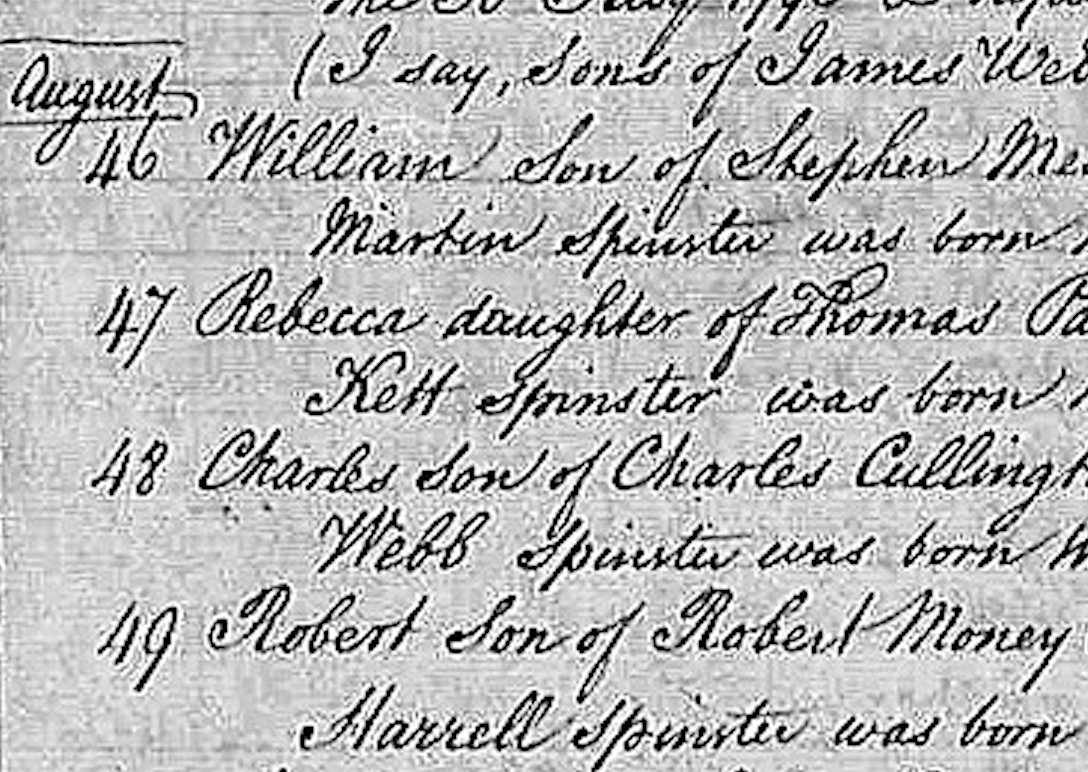 (I say, sons of James
August
46 William Son of Stephen
Martin Spinster was born
47 Rebecca daughter of Thomas
Kett Spinster was born
48 Charles Son of Charles
Webb Spinster was born
49 Robert Son of Robert Money
Harrell Spinster was born